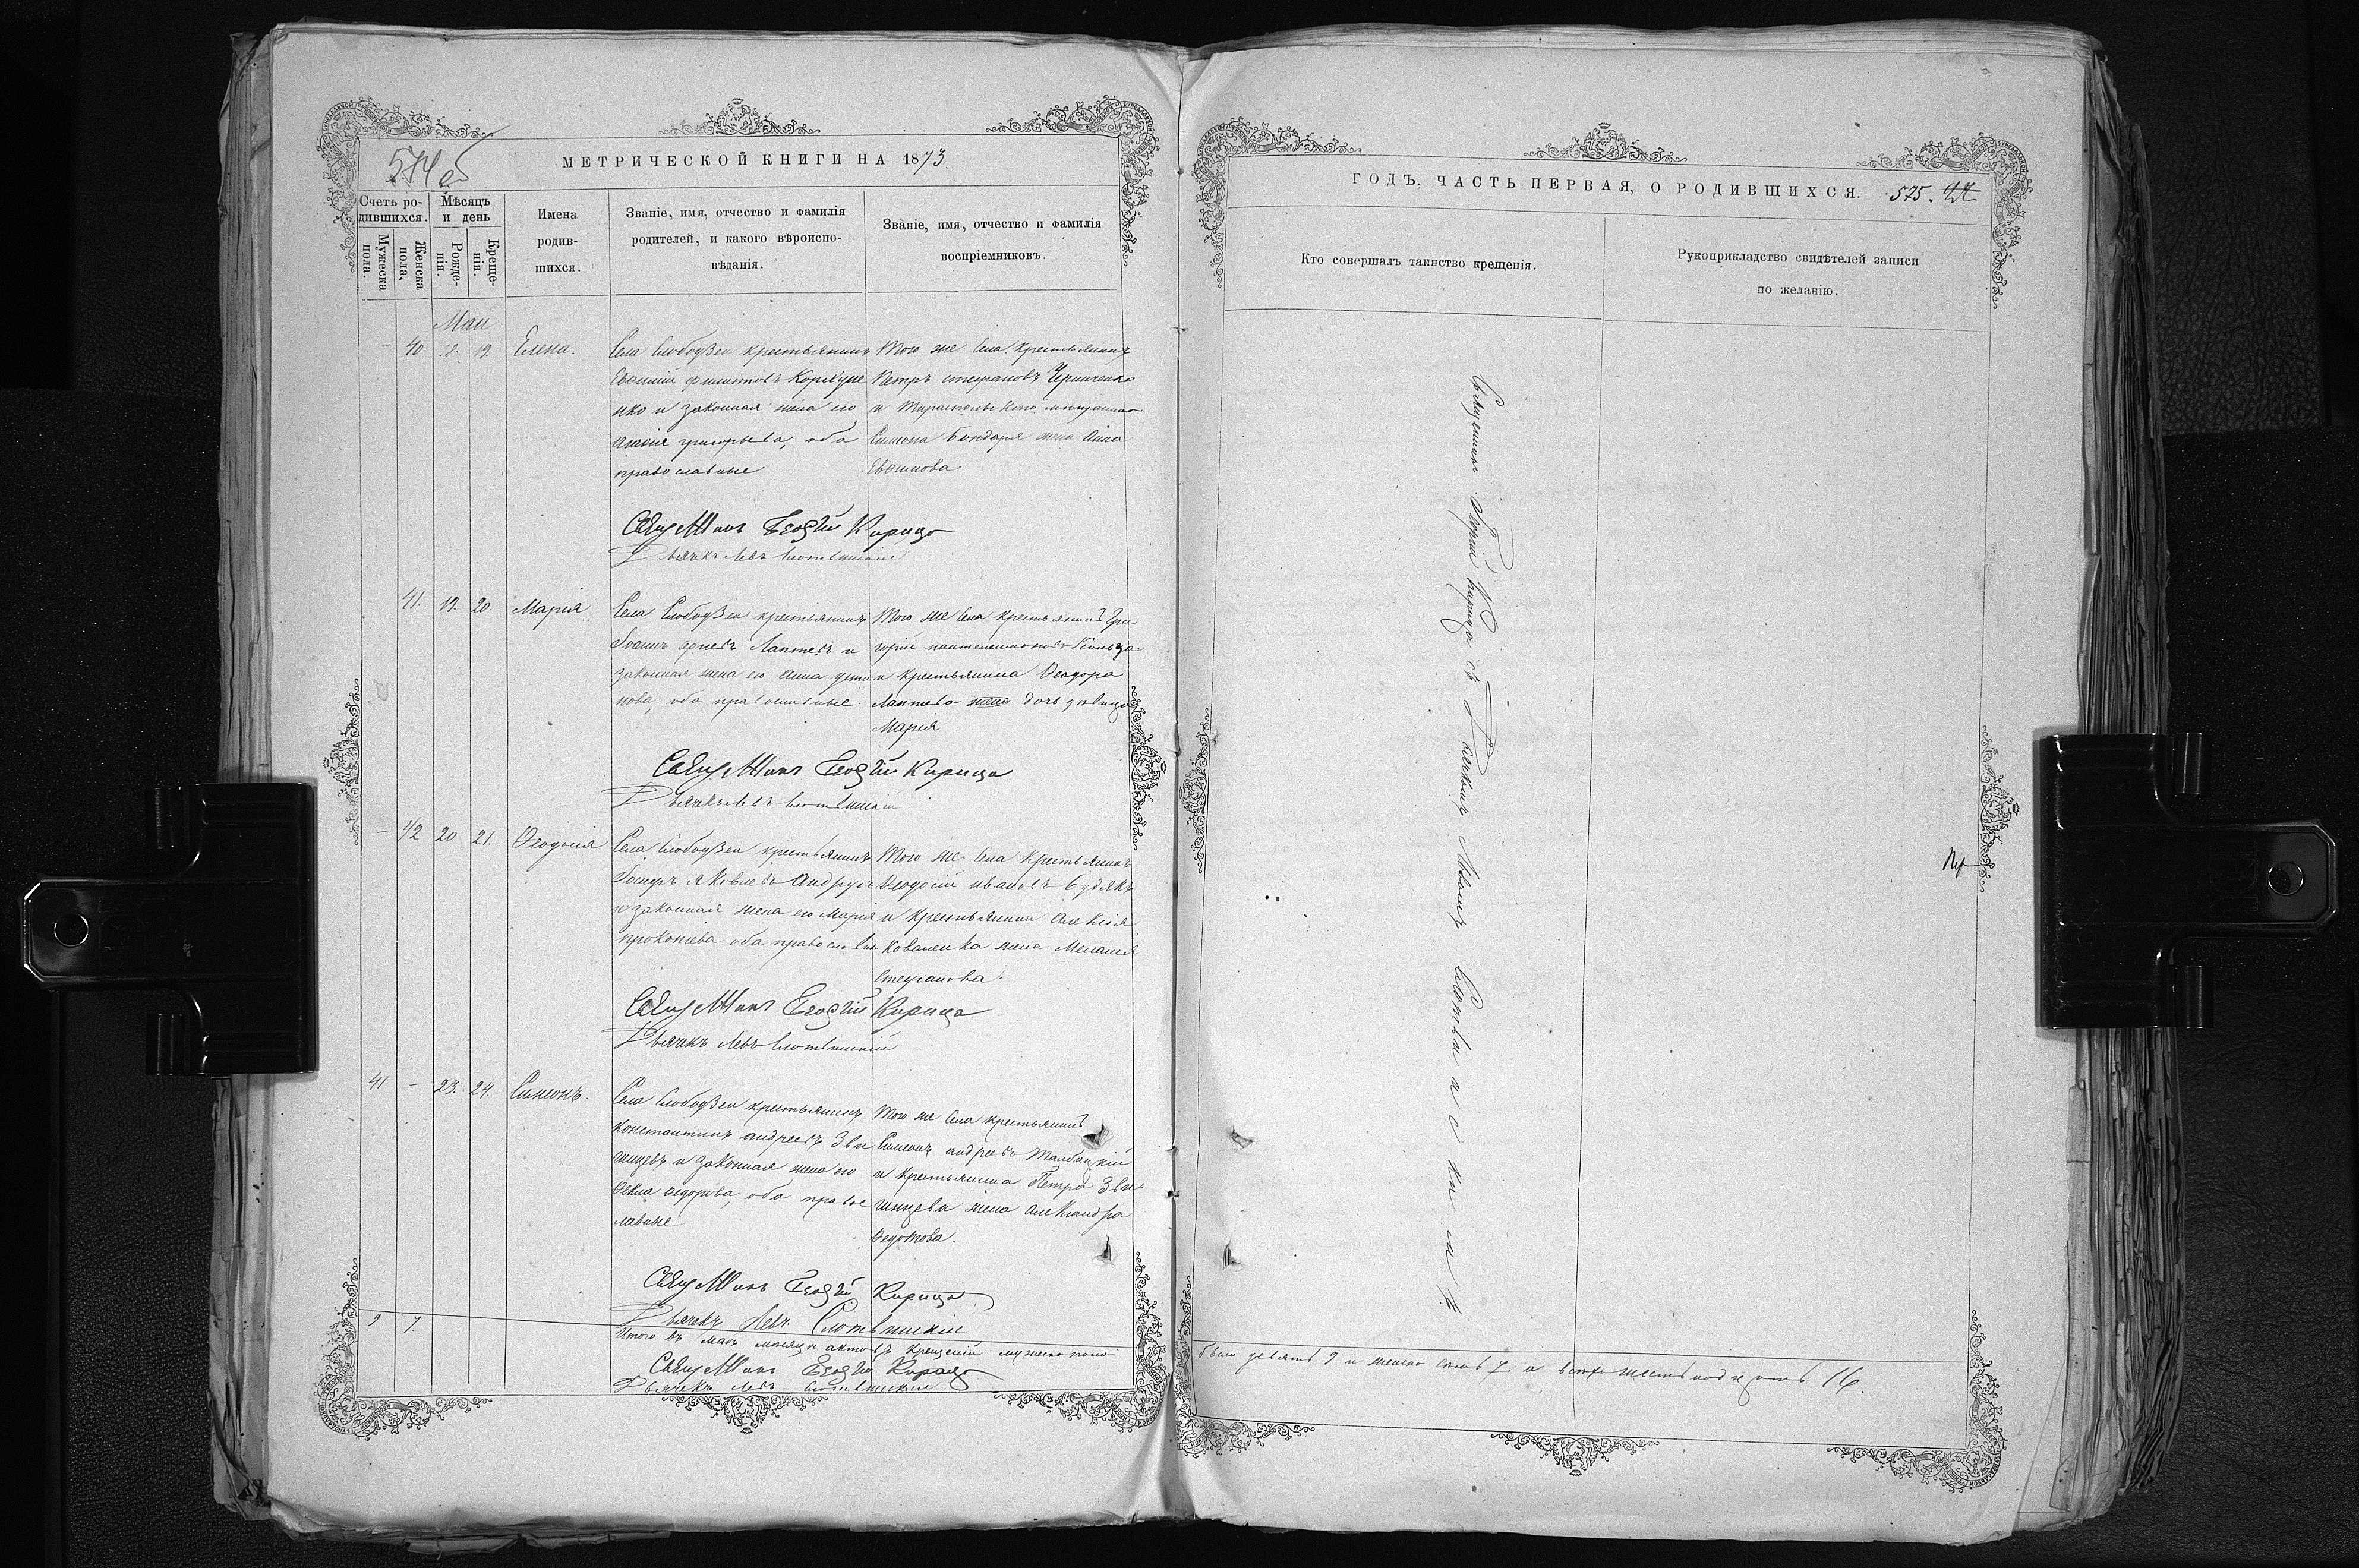 574 об
МЕТРИЧЕСКОЙ КНИГИ НА 1873.
Счетъ ро-
дившихся.
Мужеска пола.
Женска пола,
Мѣсяцъ
и день
Рожде-
нія.
Креще-
нія.
Имена
родив-
шихся.
Званіе, имя, отчество и фамилія
родителей, и какого вѣроиспо-
вѣданія.
Званіе, имя, отчество и фамилія
воспріемниковъ.
Маи
40 18. 19. Елена.
Села Слободзеи крестьянинъ
Евѳимій Филиповъ Коржуне
нко и законная жена его
Агаѳія григорьева, оба
православные
Того же села крестьянинъ
Петръ стефановъ Черниченко
и Тираспольскаго мещанина
Симона Бондаря жена Анна
Евѳимова
Священникъ Георгій Кирица
Дьячекъ Левъ Слотвинскій
41. 19. 20. Марія
Села Слободзеи крестьянинъ
Іоаннъ Лаптевъ и
законная жена его Анна
нова, оба православные.
Того же села крестьянинъ Гри
горій пантелеимоновъ Кольца
и крестьянина Ѳеодора
Лаптева жена дочь девица
Марія
Священникъ Георгій Кирица
Дьячекъ Левъ Слотвинскій
42 20 21. Ѳеодосія
Села Слободзеи крестьянинъ
Іосифъ яковлевъ Андрус
и законная жена его Марія
прокопіева оба православн
Того же села крестьянинъ
Ѳеодосій ивановъ Будякъ
и крестьянина Алексія
Коваленка жена Меланія
Стефанова.
Священникъ Георгій Кирица
Дьячекъ Левъ Слотвинскій
41 - 23. 24. Симеонъ.
Села Слободзеи крестьянинъ
Константинъ андреевъ Зви
гинцевъ и законная жена его
Ѳекла ѳедорова, оба правос
лавные
Того же села крестьянинъ
Симеонъ андреевъ
и крестьянина Петра Зви
гинцева жена Александра
Ѳедотова.
Священникъ Георгій Кирица
Дьячекъ Левъ Слотвинскій
9 7.
Итого въ маѣ месяцѣ актовъ крещеній мужеска пола
Священникъ Георгій Кирица
Дьячекъ Левъ Слотвинскій
ГОДЪ, ЧАСТЬ ПЕРВАЯ, О РОДИВШИХСЯ. 575.
Кто совершалъ таинство крещенія.
Рукоприкладство свидѣтелей записи
по желанію.
Священникъ Георгій Кирица съ Дьячкомъ Львомъ Слотвинскимъ
было девять 9 и женска семь 7 а всего шестьнадцать 16.